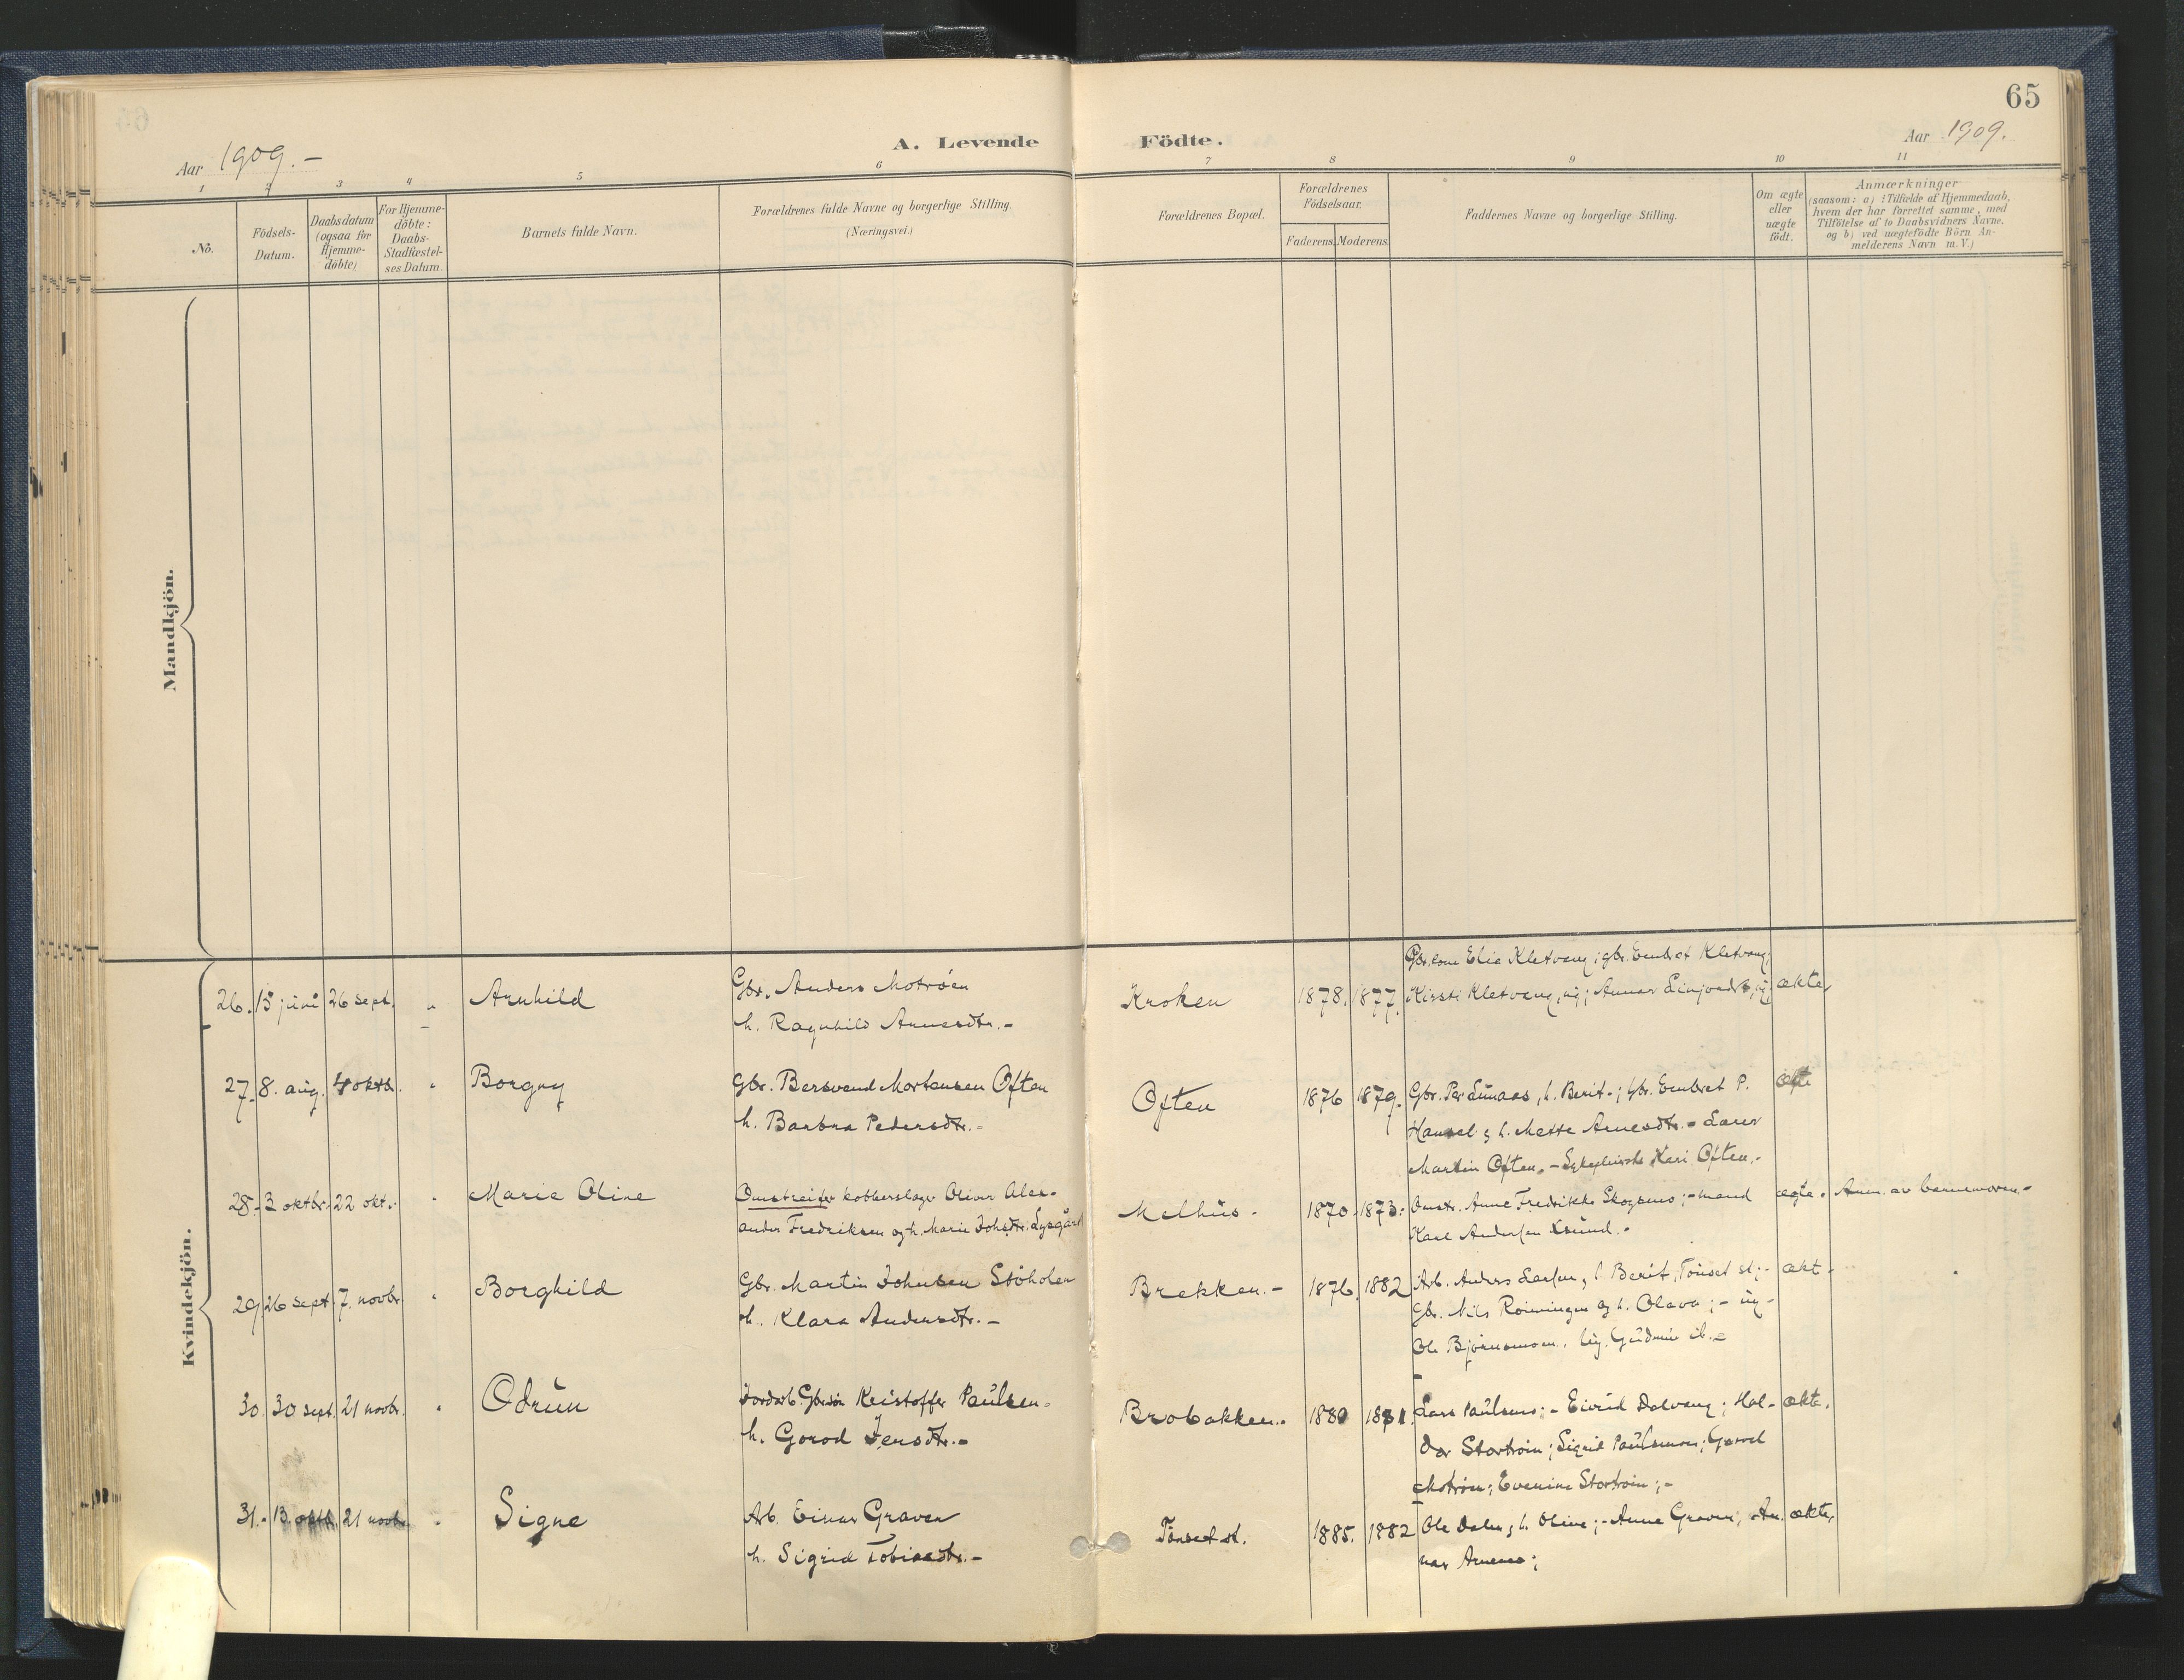 65
Aar 1909.-
A. Levende Födte.
Aar 1909.
1 2 3 4 5 6 7 8 9 10 11
No.
Födsels-
Datum.
Daabsdatum
(ogsaa for
Hjemme-
döbte)
For Hjemme-
döbte:
Daabs-
Stadfæstel-
ses Datum
Barnets fulde Navn.
Forældrenes fulde Navne og borgerlige Stilling.
(Næringsvei.)
Forældrenes Bopæl.
Forældrenes
Födselsaar.
Faderens Moderens
Faddernes Navne og borgerlige Stilling.
Om ægte
eller
uægte
födt.
Anmærkninger
(saasom: a) i Tilfælde af Hjemmedaab,
hvem der har forrettet samme, med
Tilföielse af to Daabsvidners Navne.
og b) ved uægtefödte Börn An-
melderens Navn m.V.)
Mandkjön.
Kvindekjön.
26. 15 juni 26 sept. " Arnhild
Gbr. Anders Motrøen
h. Ragnhild Arnesdtr.-
Kroken 1878. 1877.
Elie Kletvang; gbr. Embret Kletvang;
Kirsti Kletvang, ug; Annar
ækte,
27. 8. aug. 4 oktbr. " Borgny
Gbr. Bersvend Mortensen Often
h. Barbra Pedersdtr.-
Often 1876 1879.
Gbr. Per Lunaas, h. Berit-; gbr. Embret P.
h. Mette Arnesdtr.- Lærer
Martin Often.- Kari Often.-
ækte
28.- 3 oktbr. 22 okt. " Marie Oline
Omstreifer kobberslager Oliver Alex-
ander Fredriksen og h. Marie Johsdtr. Lysgård
Melhus. 1870. 1873.
Omstr. Anne Fredrikke Skogsmo;- mand
Karl Andersen
ægte. Anm. av barnemoren.-
29. 26 sept. 7. novbr. " Borghild
Gbr. Martin Johnsen Støholen
h. Klara Andersdtr.-
Brekken.- 1876. 1882
Arb. Anders Larsen, h. Berit, Tønset st;-
Gbr. Nils Roinningen og h. Olava;- ug-
Ole Bjørnsmoen. Ug. Gudrun ib.-
ækt.
30. 30 sept. 21 novbr. " Odrun
Jordarb. Gbrsøn Kristoffer Paulsen-
h. Gorod Jensdtr.-
Brobakken. 1880 1881.
Lars Paulsmo;- Eivind Dalvang; Hal-
dor Stortrøin; Sigrid Paulsmoen; Gorod
Motrøen; Evenine Stortrøin;-
ækte.
31.- 13. oktb. 21 novbr. " Signe
Arb. Einar Graven
h. Sigrid Tobiasdtr.-
Tønset st. 1885. 1882
Ole Dalen, h. Oline;- Anne Graven; An-
nar Arnemo;
ækte,